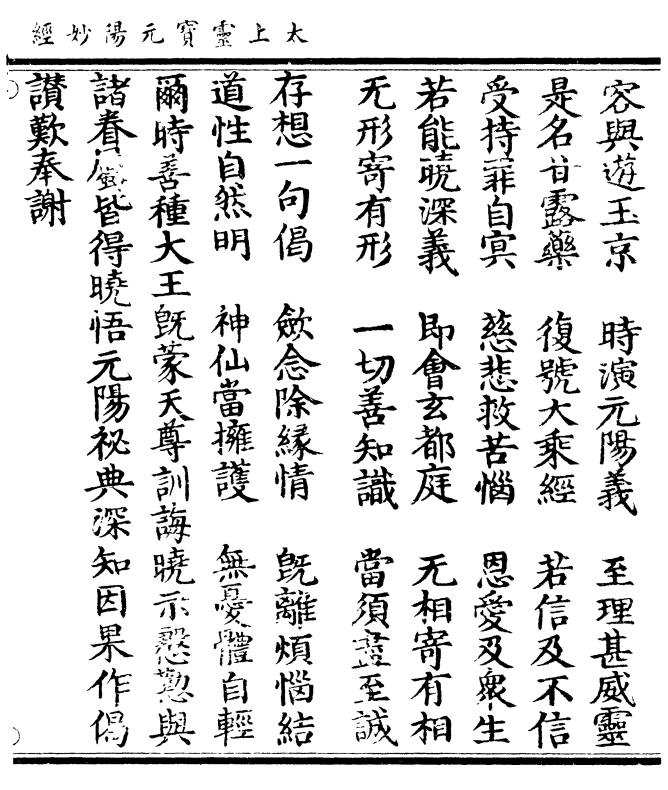 太上靈寶元陽妙經
容與遊玉京　時演元陽義　至理甚威靈
是名甘露藥　復號大乘經　若信及不信
受持罪自冥　慈悲救苦惱　恩愛及衆生
若能曉深義　即會玄都庭　无相寄有相
无形寄有形　一切善知識　當須盡至誠
存想一句偈　斂念除緣情　旣離煩惱結
道性自然明　神仙當擁護　無憂體自輕
爾時善種大王旣蒙天尊訓誨曉示慇懃與
諸眷屬皆得曉悟元陽祕典深知因果作偈
讃歎奉謝